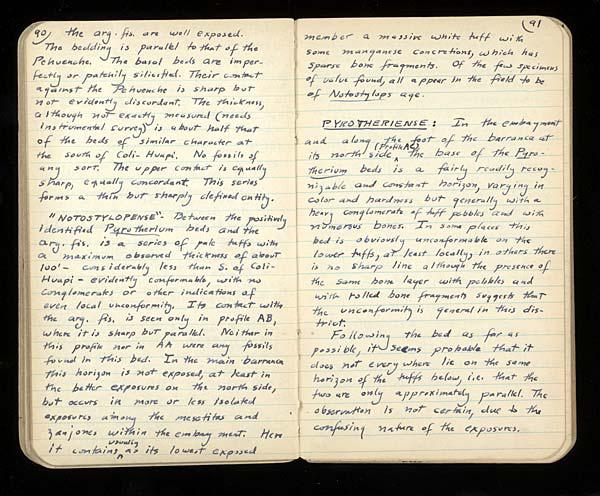 90
the arg. fis. are well exposed.
The bedding is parallel to that of the
Pehuenche. The basal beds are imper-
fectly or patchily silicified. Their contact
against the Pehuenche is sharp but
not evidently discordant. The thickness,
although not exactly measured (needs
instrumental survey) is about half that
of the beds of similar character at
the south of Coli-Huapi. No fossils of
any sort. The upper contact is equally
sharp, equally concordant. This series
forms a thin but sharply defined entity.
"NOTOSTYLOPENSE". Between the positively
identified Pyrotherium beds and the
arg. fis. is a series of pale tuffs with
a maximum observed thickness of about
100' - considerably less than S. of Coli-
Huapi - evidently conformable, with no
conglomerates or other indications of
even local unconformity. Its contact with
the arg. fis. is seen only in profile AB,
where it is sharp but parallel. Neither in
this profile nor in AA were any fossils
found in this bed. In the main barranca
this horizon is not exposed, at least in
the better exposures on the north side,
but occurs in more or less isolated
exposures among the mesetitas and
zanjones within the embayment. Here
it contains usually as its lowest exposed
91
member a massive white tuff with
some manganese concretions, which has
sparse bone fragments. Of the few specimens
of value found, all appear in the field to be
of Notostylops age.
PYROTHERIENSE: In the embayment
and along the foot of the barranca at
its north side (Profile AC) the base of the Pyro-
therium beds is a fairly readily recog-
nizable and constant horizon, varying in
color and hardness but generally with a
heavy conglomerate of tuff pebbles and with
numerous bones. In some places this
bed is obviously unconformable on the
lower tuffs, at least locally, in others there
is no sharp line although the presence of
the same bone layer with pebbles and
with rolled bone fragments suggests that
the unconformity is general in this dis-
trict.
Following the bed as far as
possible, it seems probable that it
does not everywhere lie on the same
horizon of the tuffs below, i.e. that the
two are only approximately parallel. The
observation is not certain, due to the
confusing nature of the exposures.